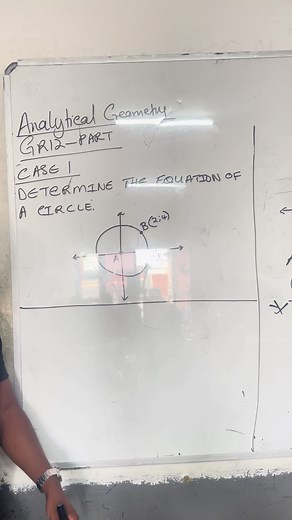 Analytical Geometry
GR12-PART
CASE 1
DETERMINE THE EQUATION OF
A CIRCLE.
B(2;4)
A